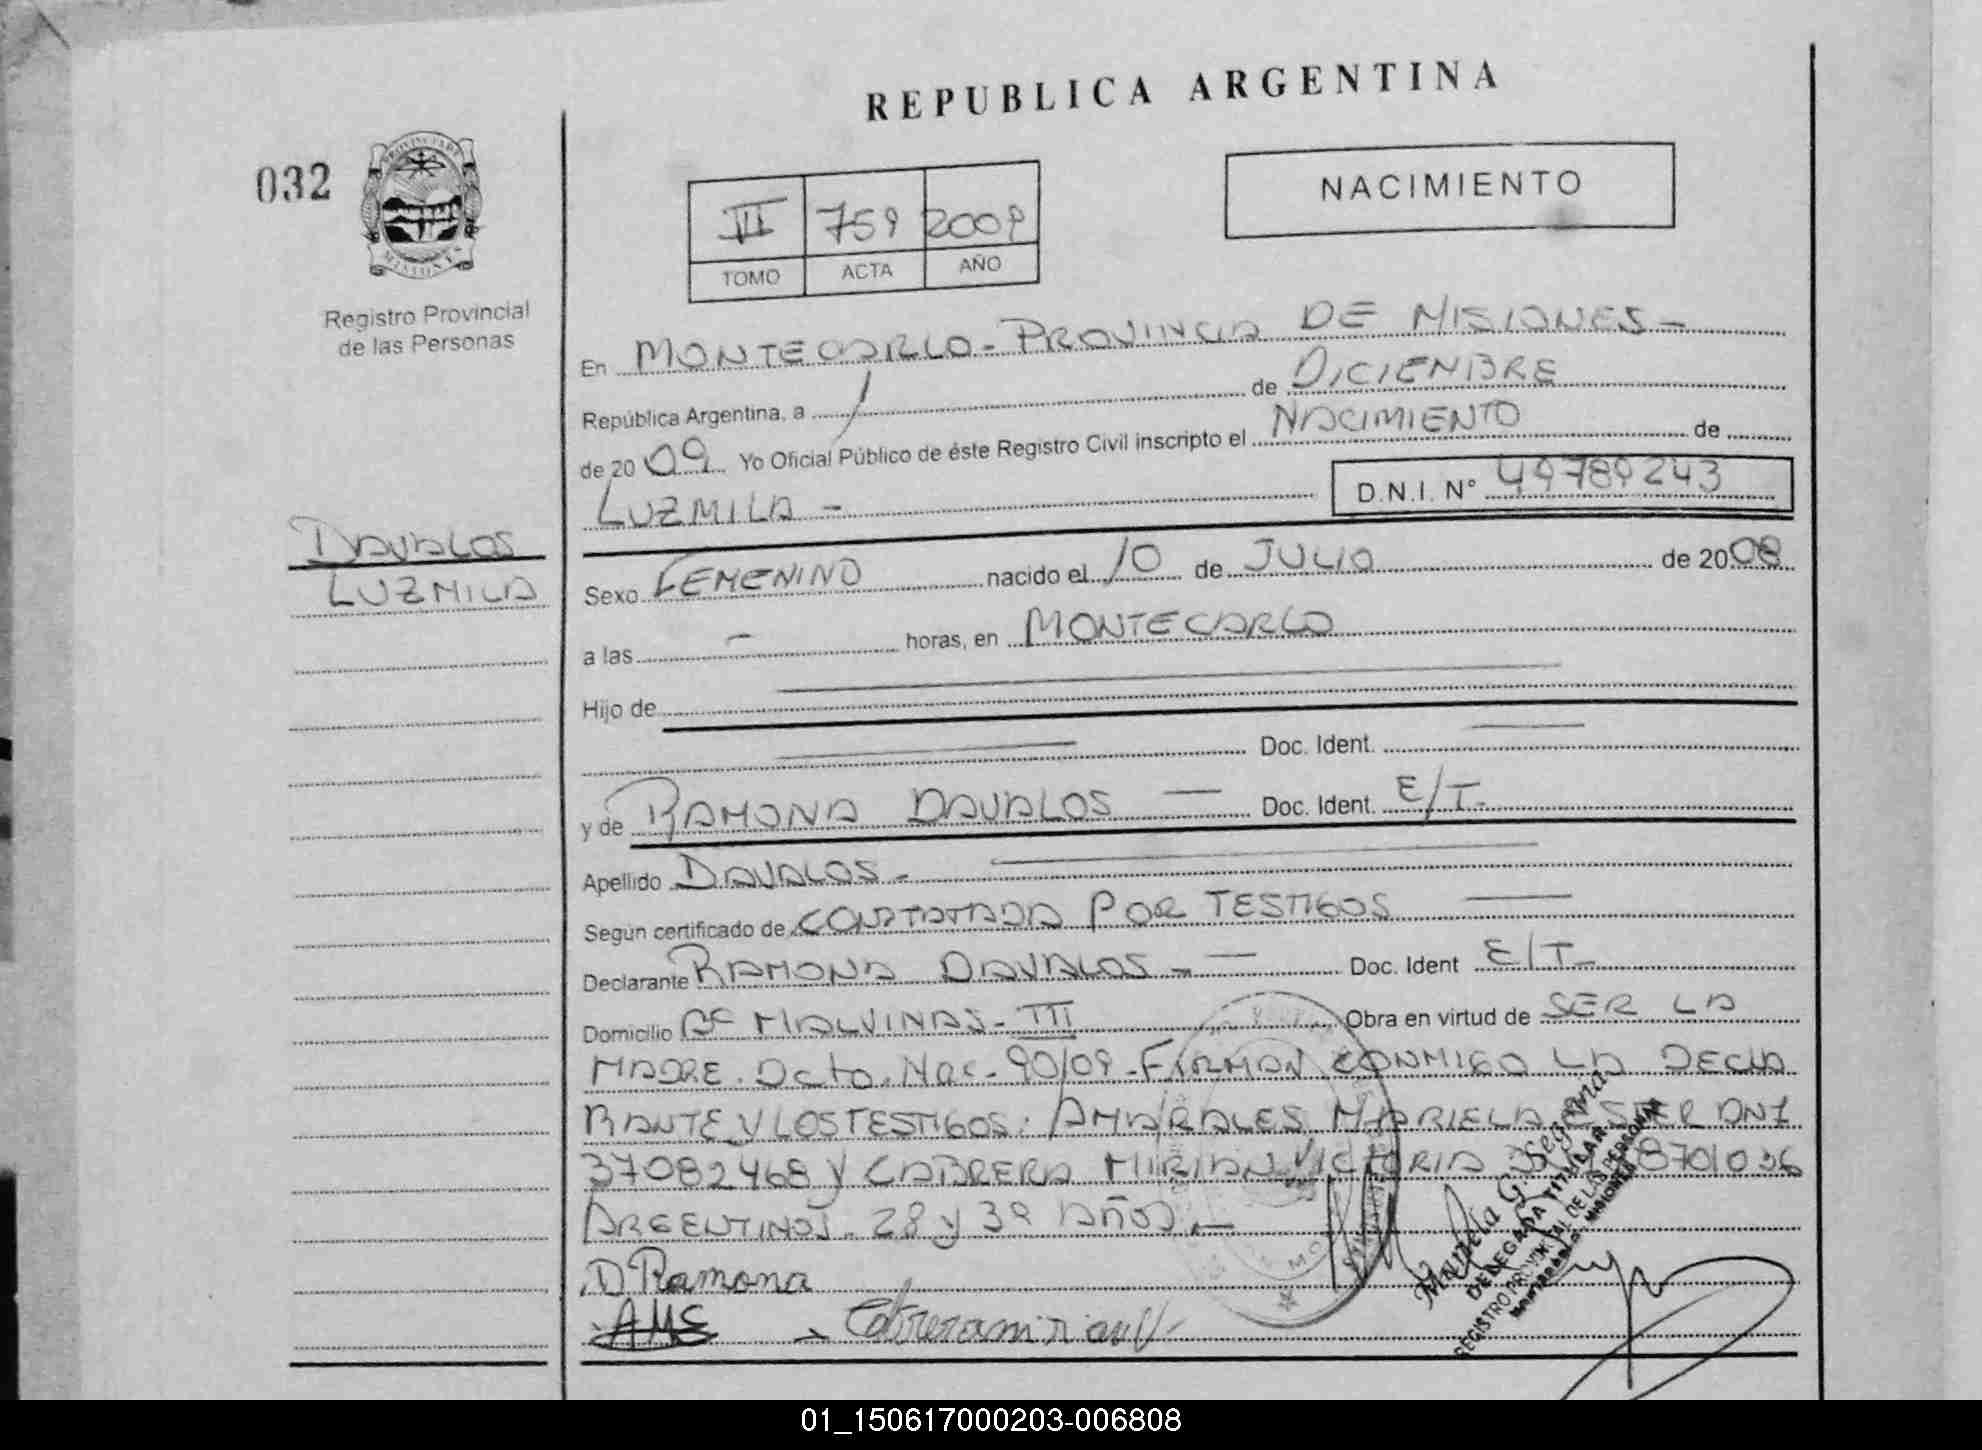 REPUBLICA ARGENTINA
032
NACIMIENTO
759 2009
TOMO ACTA AÑO
Registro Provincial
de las Personas
En MONTECARLO - PROVINCIA DE MISIONES -
República Argentina, a 1 de DICIEMBRE
de 2009 Yo Oficial Público de éste Registro Civil inscripto el NACIMIENTO de
LUZMILA - D.N.I. N° 49789243
DAVALOS
LUZMILA
Sexo FEMENINO nacido el 10 de JULIO de 2008
a las - horas, en MONTECARLO
Hijo de
Doc. Ident.
y de RAMONA DAVALOS — Doc. Ident. E/T-
Apellido DAVALOS -
Según certificado de CONSTATADA POR TESTIGOS
Declarante RAMONA DAVALOS - — Doc. Ident E/T-
Domicilio Bº MALVINAS - III Obra en virtud de SER LA
MADRE. Dcto. Nac. 90/09 - FIRMAN CONMIGO LA DECLA
RANTE Y LOS TESTIGOS: AMARALES MARIELA ESTER DNI
37082468 Y CABRERA MIRIAN VICTORIA 8701036
ARGENTINOS - 28 y 39 AÑOS -
D Ramona
AME - Cabrera mirian V-
Mariela G. Segovia
DELEGADA TITULAR
REGISTRO PROVINCIAL DE LAS PERSONAS
MISIONES
01_150617000203-006808